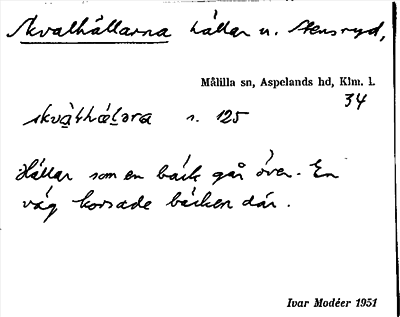 Skvalhällarna hällar n. Stensryd,
Målilla sn, Aspelands hd, Klm. l.
34
skvàlhæḷəra s. 125
Hällar som en bäck går över. En
väg korsade bäcken där.
Ivar Modéer 1951